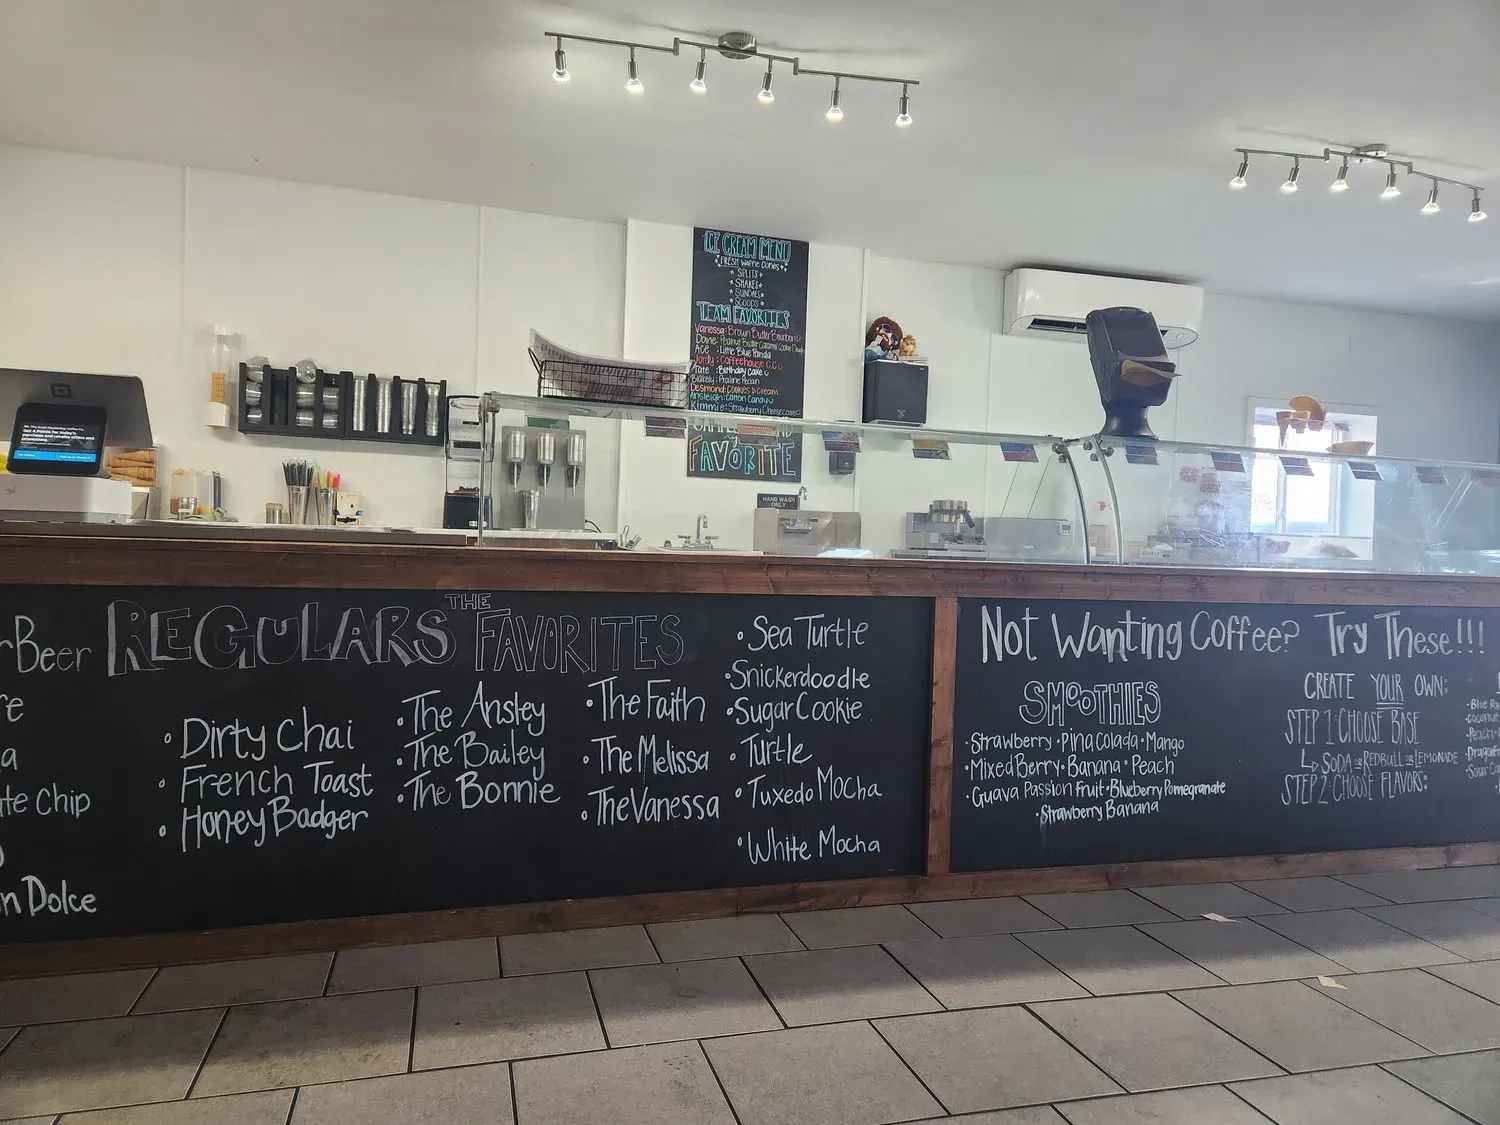 ICE CREAM MENU
FRESH Waffle Cones
SPLITS
SHAKES
SUNDAES
SCOOPS
TEAM FAVORITES
Vanessa: Brown Butter Bourbon
Peanut Butter Caramel Cookie Dough
Ace: Little Blue Panda
Coffeehouse
Tate: Birthday Cake
Blakely: Praline Pecan
Desmond: Cookies & Cream
Ansleigh: Cotton Candy
Kimmie: Strawberry Cheesecake
FAVORITE
HAND WASH
ONLY
Beer
te Chip
Dolce
REGULARS THE FAVORITES
• Dirty Chai
• French Toast
• Honey Badger
• The Ansley
• The Bailey
• The Bonnie
• The Faith
• The Melissa
• The Vanessa
• Sea Turtle
• Snickerdoodle
• Sugar Cookie
• Turtle
• Tuxedo Mocha
• White Mocha
Not Wanting Coffee? Try These!!!
SMOOTHIES
• Strawberry • Pina Colada • Mango
• Mixed Berry • Banana • Peach
• Guava Passion Fruit • Blueberry Pomegranate
• Strawberry Banana
CREATE YOUR OWN:
STEP 1: CHOOSE BASE
SODA OR REDBULL OR LEMONADE
STEP 2: CHOOSE FLAVORS: